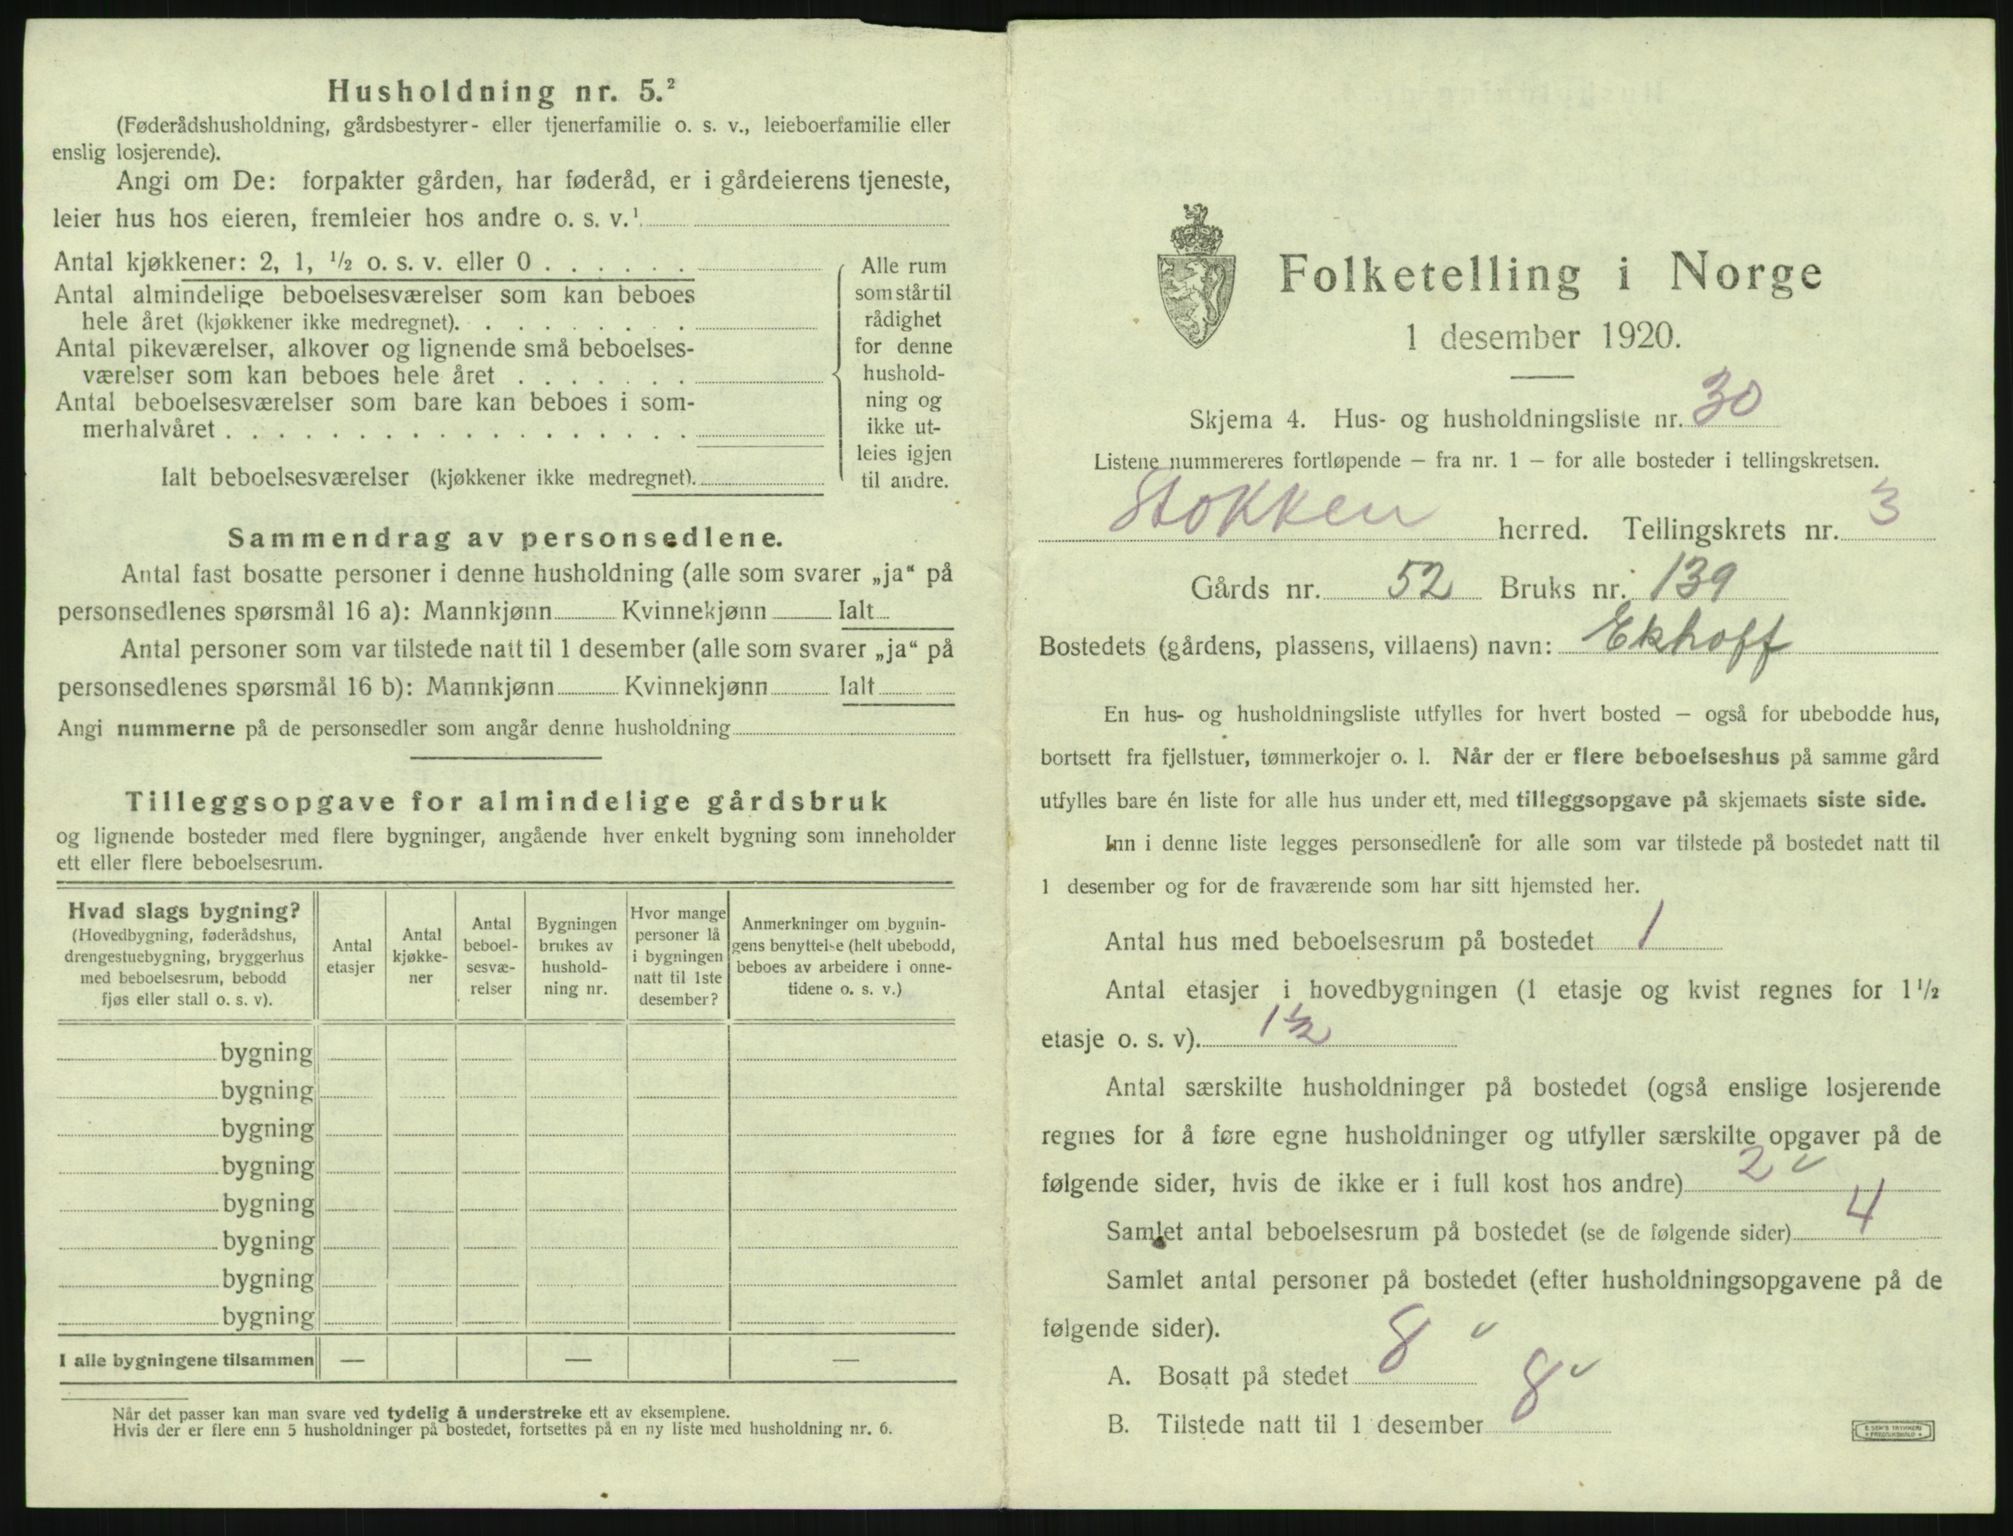 Husholdning nr. 5.²
(Føderådshusholdning, gårdsbestyrer- eller tjenerfamilie o. s. v., leieboerfamilie eller
enslig losjerende).
Angi om De: forpakter gården, har føderåd, er i gårdeierens tjeneste,
leier hus hos eieren, fremleier hos andre o. s. v.¹
Antal kjøkkener: 2, 1, ½ o. s. v. eller 0 . . . . . .
Antal almindelige beboelsesværelser som kan beboes
hele året (kjøkkener ikke medregnet). . . . . . . . .
Antal pikeværelser, alkover og lignende små beboelses-
værelser som kan beboes hele året . . . . . . .
Antal beboelsesværelser som bare kan beboes i som-
merhalvåret . . . . . . . . . . . . . . . . . .
Ialt beboelsesværelser (kjøkkener ikke medregnet).
Alle rum
som står til
rådighet
for denne
hushold-
ning og
ikke ut-
leies igjen
til andre.
Sammendrag av personsedlene.
Antal fast bosatte personer i denne husholdning (alle som svarer „ja“ på
personsedlenes spørsmål 16 a): Mannkjønn Kvinnekjønn Ialt
Antal personer som var tilstede natt til 1 desember (alle som svarer „ja“ på
personsedlenes spørsmål 16 b): Mannkjønn Kvinnekjønn Ialt
Angi nummerne på de personsedler som angår denne husholdning
Tilleggsopgave for almindelige gårdsbruk
og lignende bosteder med flere bygninger, angående hver enkelt bygning som inneholder
ett eller flere beboelsesrum.
Hvad slags bygning?
(Hovedbygning, føderådshus,
drengestuebygning, bryggerhus
med beboelsesrum, bebodd
fjøs eller stall o. s. v).
Antal
etasjer
Antal
kjøkke-
ner
Antal
beboel-
sesvæ-
relser
Bygningen
brukes av
hushold-
ning nr.
Hvor mange
personer lå
i bygningen
natt til 1ste
desember?
Anmerkninger om bygnin-
gens benyttelse (helt ubebodd,
beboes av arbeidere i onne-
tidene o. s. v.)
bygning
bygning
bygning
bygning
bygning
bygning
bygning
bygning
I alle bygningene tilsammen — — —
Når det passer kan man svare ved tydelig å understreke ett av eksemplene.
Hvis der er flere enn 5 husholdninger på bostedet, fortsettes på en ny liste med husholdning nr. 6.
Folketelling i Norge
1 desember 1920.
Skjema 4. Hus- og husholdningsliste nr. 30
Listene nummereres fortløpende — fra nr. 1 — for alle bosteder i tellingskretsen.
Stokken herred. Tellingskrets nr. 3
Gårds nr. 52 Bruks nr. 139
Bostedets (gårdens, plassens, villaens) navn: Ekhoff
En hus- og husholdningsliste utfylles for hvert bosted — også for ubebodde hus,
bortsett fra fjellstuer, tømmerkojer o. l. Når der er flere beboelseshus på samme gård
utfylles bare én liste for alle hus under ett, med tilleggsopgave på skjemaets siste side.
Inn i denne liste legges personsedlene for alle som var tilstede på bostedet natt til
1 desember og for de fraværende som har sitt hjemsted her.
Antal hus med beboelsesrum på bostedet 1
Antal etasjer i hovedbygningen (1 etasje og kvist regnes for 1½
etasje o. s. v). 1½
Antal særskilte husholdninger på bostedet (også enslige losjerende
regnes for å føre egne husholdninger og utfyller særskilte opgaver på de
følgende sider, hvis de ikke er i full kost hos andre) 2 ✓
Samlet antal beboelsesrum på bostedet (se de følgende sider) 4
Samlet antal personer på bostedet (efter husholdningsopgavene på de
følgende sider).
A. Bosatt på stedet 8 ✓
B. Tilstede natt til 1 desember 8 ✓